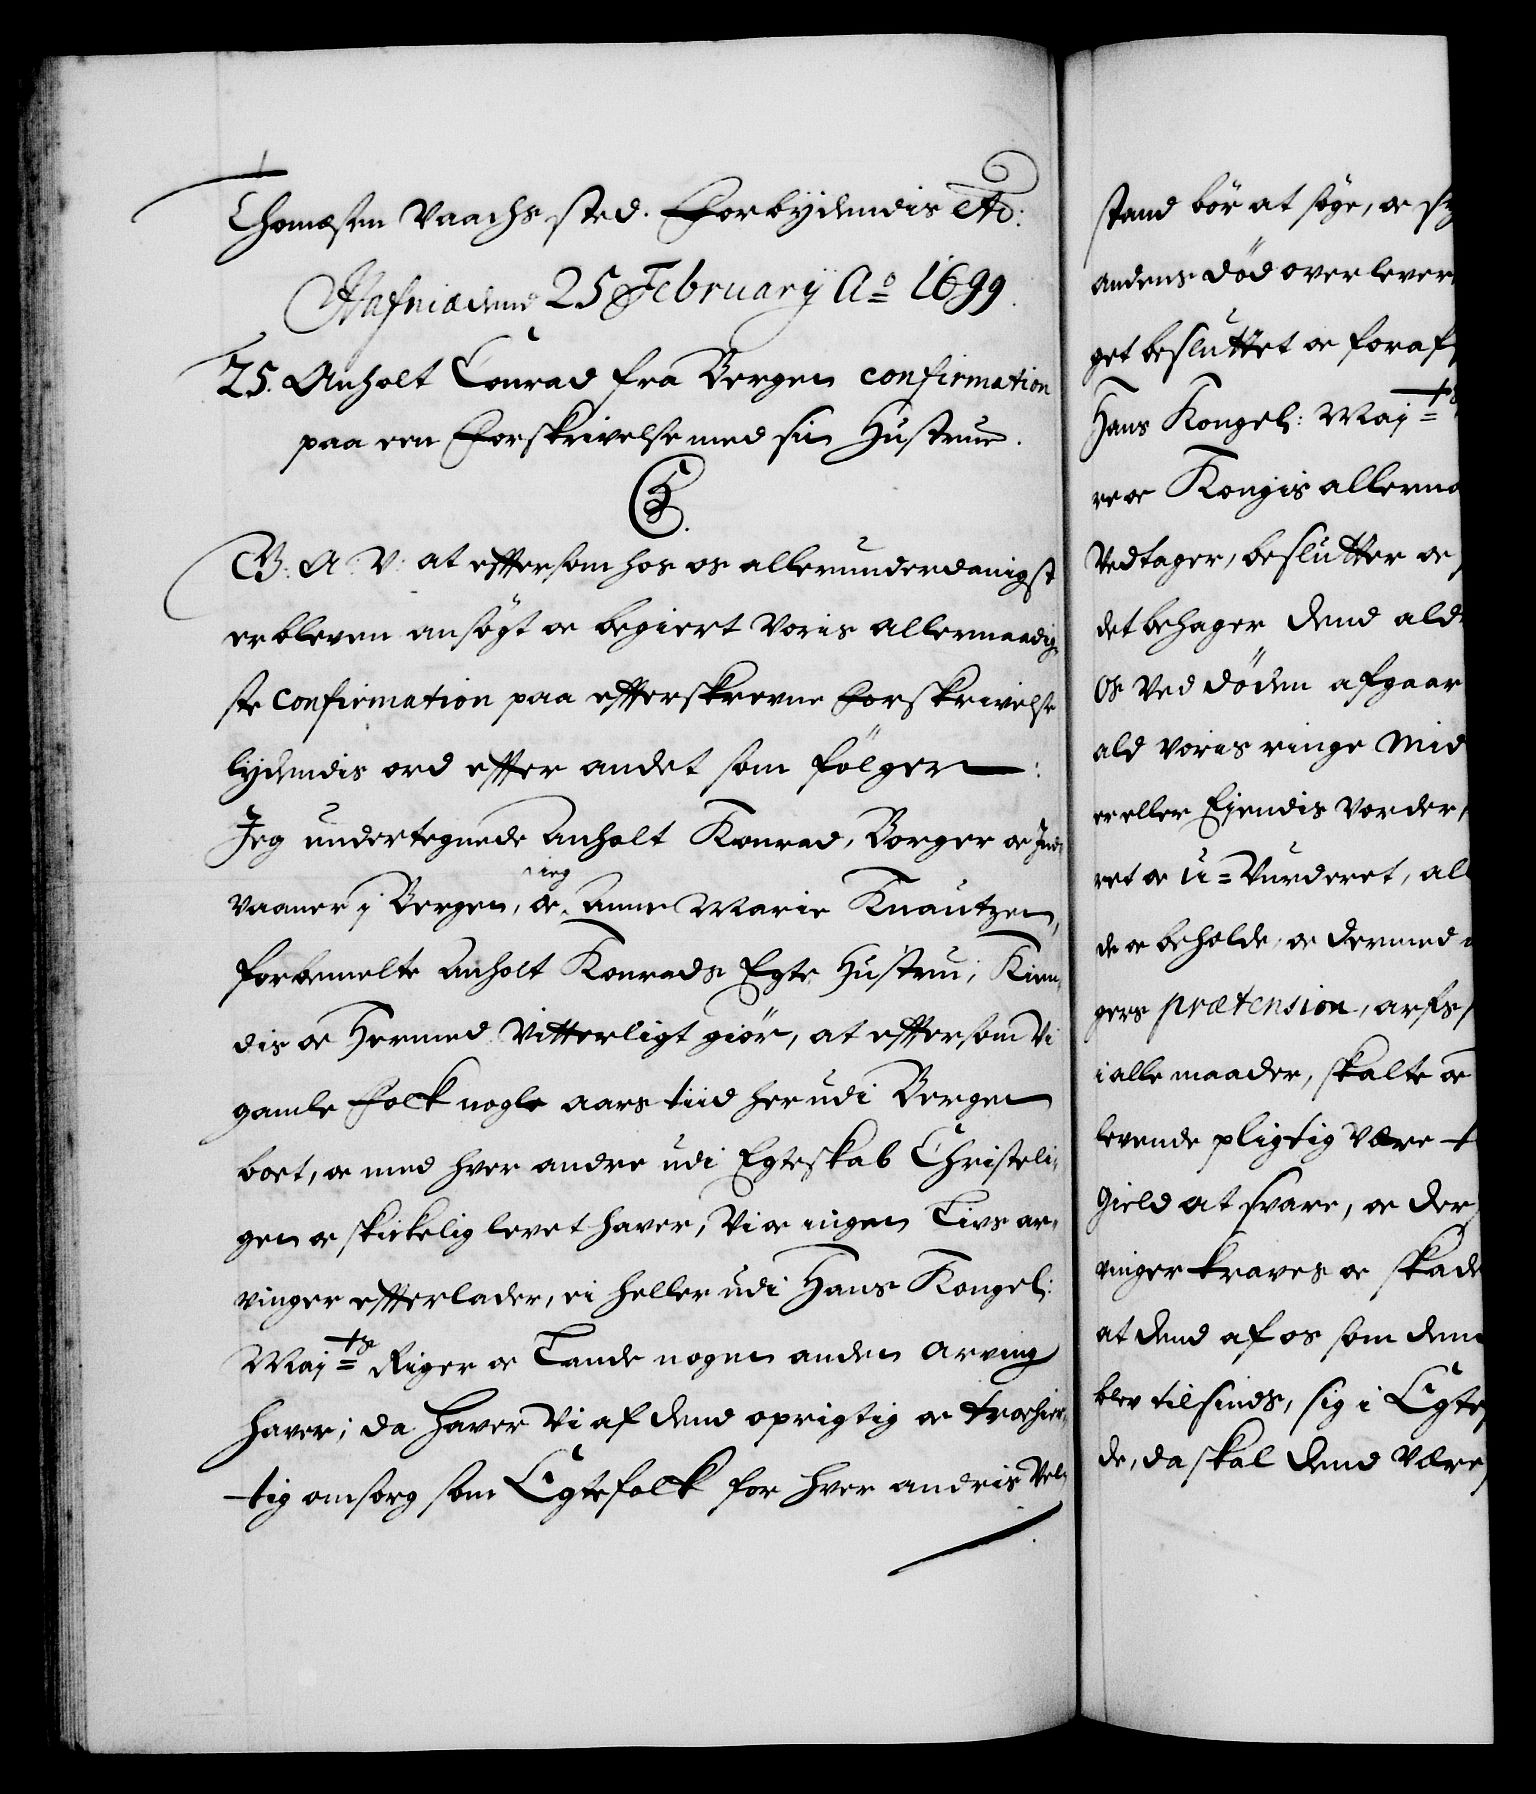 Thomæsen Vaachs sted. Forbydendis etc:
Hafniæ dend 25 February Ao 1699.
25. Anholt Conrad fra Bergen confirmation
paa een Forskrivelse med sin Hustrue.
C5.
G: A: V: at effersom hos os allerunderdanigst
er bleven ansögt oc begiert Voris allernaadig-
ste confirmation paa effterskrevne Forskrivelse
lydendis ord effter andet som fölger:
Jeg undertegnede Anholt Konrad, Borger oc Ind-
vaaner j Bergen, oc ieg Anne Marie Knautzen,
forbemelte Anholt Konrads Egte Hustru; Kien-
dis oc Hermed Vitterligt giör, at effersom Vi
gamle Folk nogle aars tiid her udi Bergen
boet, oc med hver andre udi Egteskab Christeli-
gen oc skickelig levet haver, Vi oc ingen Livs ar-
vinger effterlader, ei heller udi Hans Kongel:
Maj=ts Riger oc Lande nogen anden Arving
haver; da haver Vi af dend oprigtig oc troehier-
tig omsorg som Egtefolk for hver andris Vel-
stand bör at söge, oc
andens död over lever
get besluttet oc foraf
Hans Kongel: Maj=ts
re oc Kongis allerna
Vedtager, beslutter oc
det behager dend ald
os Ved döden afgaar
ald Voris ringe Mid
er eller Ejendis Vorder,
ret oc U=Vurderet, al
de oc beholde, oc dermed
gers prætension, arfs
i alle maader, skalte oc
levende pligtig Være
Gield at svare, oc der
vinger kraves oc skade
at dend af os som den
blev tilsinds, sig i Egte
de, da skal dend Være